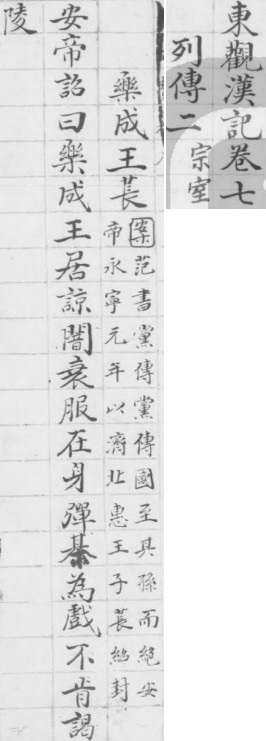 東觀漢記卷七
列傳二 宗室
樂成王萇
案范書黨傳黨傳國至其孫而絕安
帝永寧元年以濟北惠王子萇紹封
安帝詔曰樂成王居諒闇衰服在身彈棊為戲不肯謁
陵